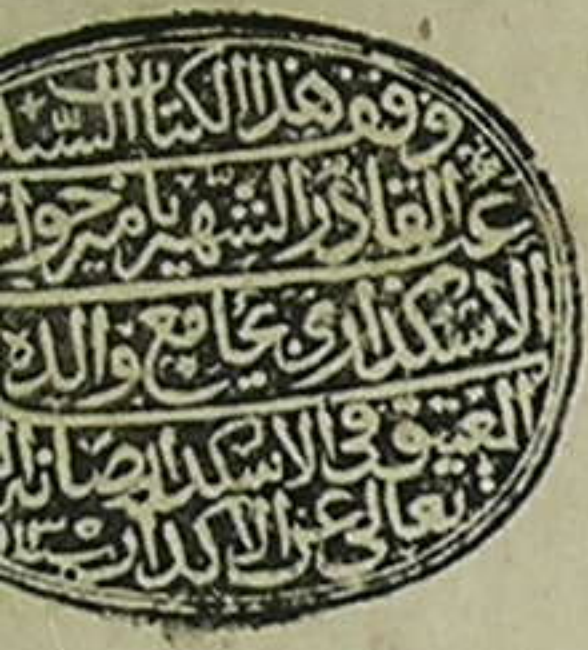 وقف هذا الكتاب السيد
عبد القادر الشهير بامير خوا
الاسكداري بجامع والده
العتيق في الاسكدار صانه
تعالى عن الاكدار